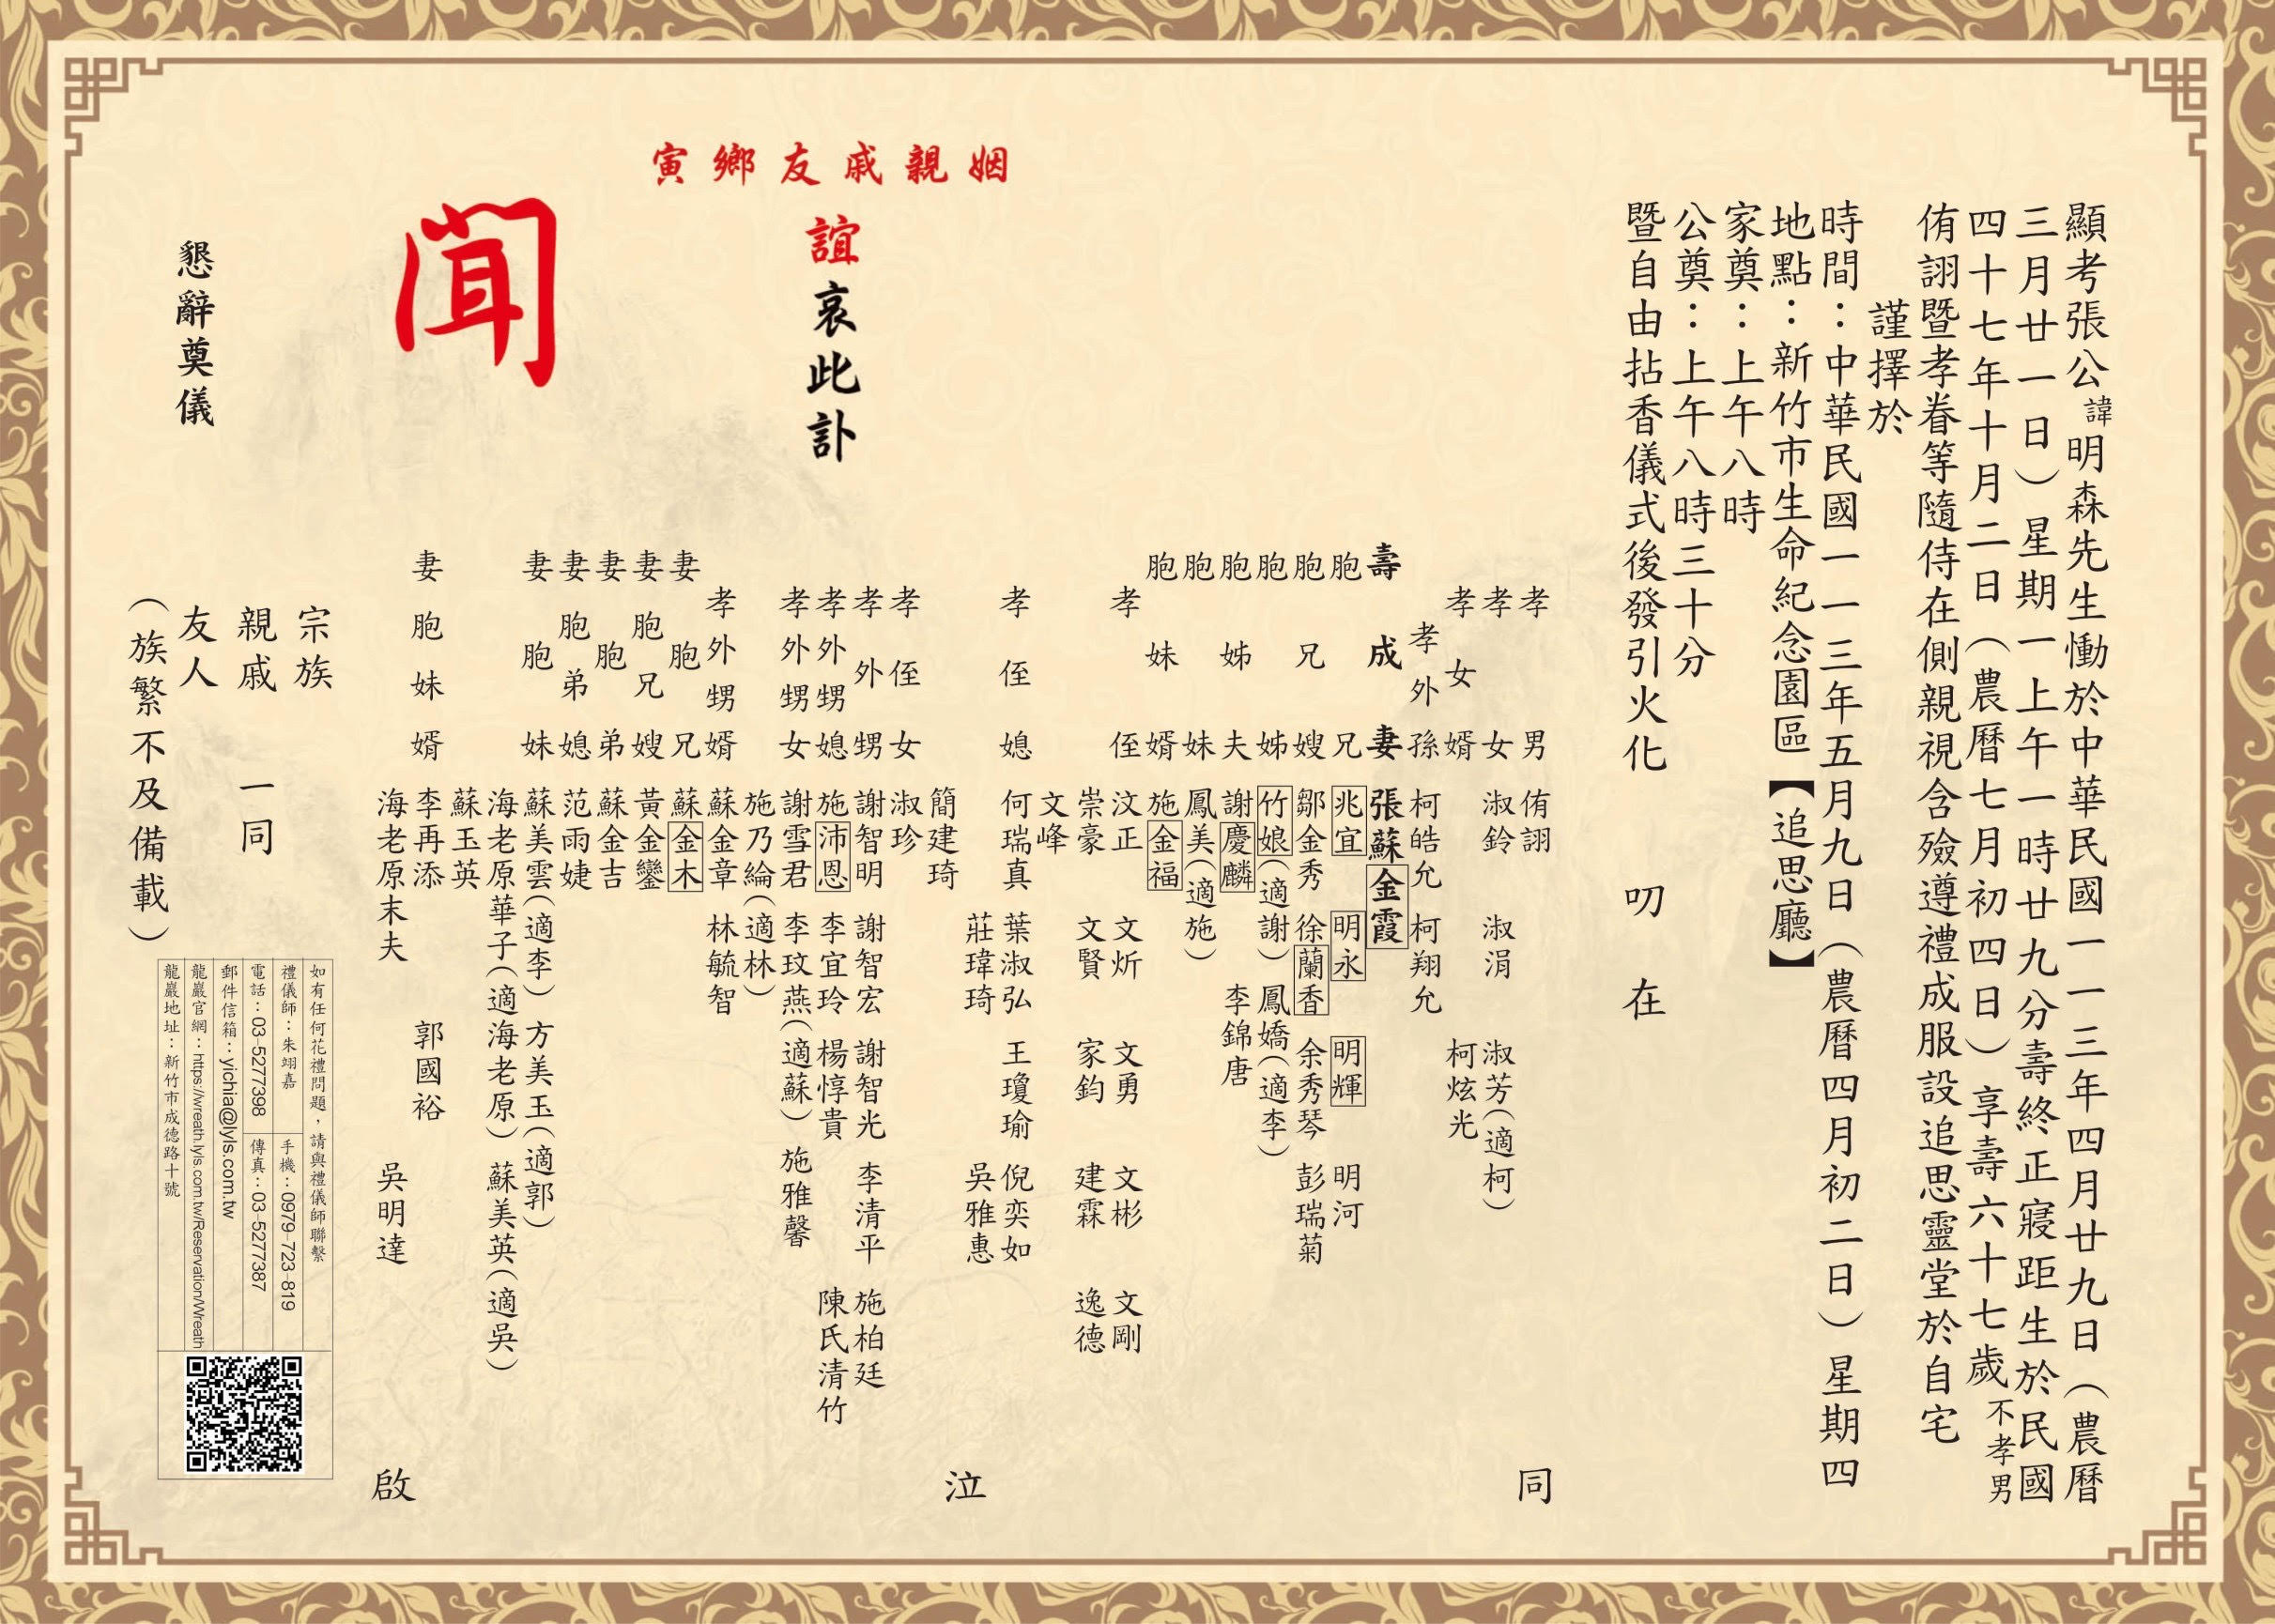 顯考張公諱明森先生慟於中華民國一一三年四月廿九日（農曆
三月廿一日）星期一上午一時廿九分壽終正寢距生於民國
四十七年十月二日（農曆七月初四日）享壽六十七歲不孝男
侑詡暨孝眷等隨侍在側親視含殮遵禮成服設追思靈堂於自宅
謹擇於
時間：中華民國一一三年五月九日（農曆四月初二日）星期四
地點：新竹市生命紀念園區【追思廳】
家奠：上午八時
公奠：上午八時三十分
暨自由拈香儀式後發引火化 叨在
姻親戚友鄉寅
誼哀此訃
聞
懇辭奠儀
孝男 侑詡
孝女 淑鈴 淑涓 淑芳（適柯）
孝女婿 柯炫光
孝外孫 柯皓允 柯翔允
壽成妻 張蘇金霞
胞兄 兆宜 明永 明輝 明河
胞兄嫂 鄒金秀 徐蘭香 余秀琴 彭瑞菊
胞姊 竹娘（適謝） 鳳嬌（適李）
胞姊夫 謝慶麟 李錦唐
胞妹 鳳美（適施）
胞妹婿 施金福
孝侄 汶正 文炘 文勇 文彬 文剛
崇豪 文賢 家鈞 建霖 逸德
文峰
孝侄媳 何瑞真 葉淑弘 王瓊瑜 倪奕如
莊瑋琦 吳雅惠
簡建琦
孝侄女 淑珍
孝外甥 謝智明 謝智宏 謝智光 李清平 施柏廷
孝外甥媳 施沛恩 李宜玲 楊惇貴 陳氏清竹
孝外甥女 謝雪君 李玟燕（適蘇） 施雅馨
施乃綸（適林）
孝外甥婿 蘇金章 林毓智
妻胞兄 蘇金木
妻胞兄嫂 黃金鑾
妻胞弟 蘇金吉
妻胞弟媳 范雨婕
妻胞妹 蘇美雲（適李） 方美玉（適郭）
海老原華子（適海老原） 蘇美英（適吳）
蘇玉英
妻胞妹婿 李再添 郭國裕
海老原末夫 吳明達
同泣啟
宗族
親戚 一同
友人
（族繁不及備載）
如有任何花禮問題，請與禮儀師聯繫
禮儀師：朱翊嘉 手機：0979-723-819
電話：03-5277398 傳真：03-5277387
郵件信箱：yichia@lyls.com.tw
龍巖官網：https://wreath.lyls.com.tw/Reservation/Wreath
龍巖地址：新竹市成德路十號